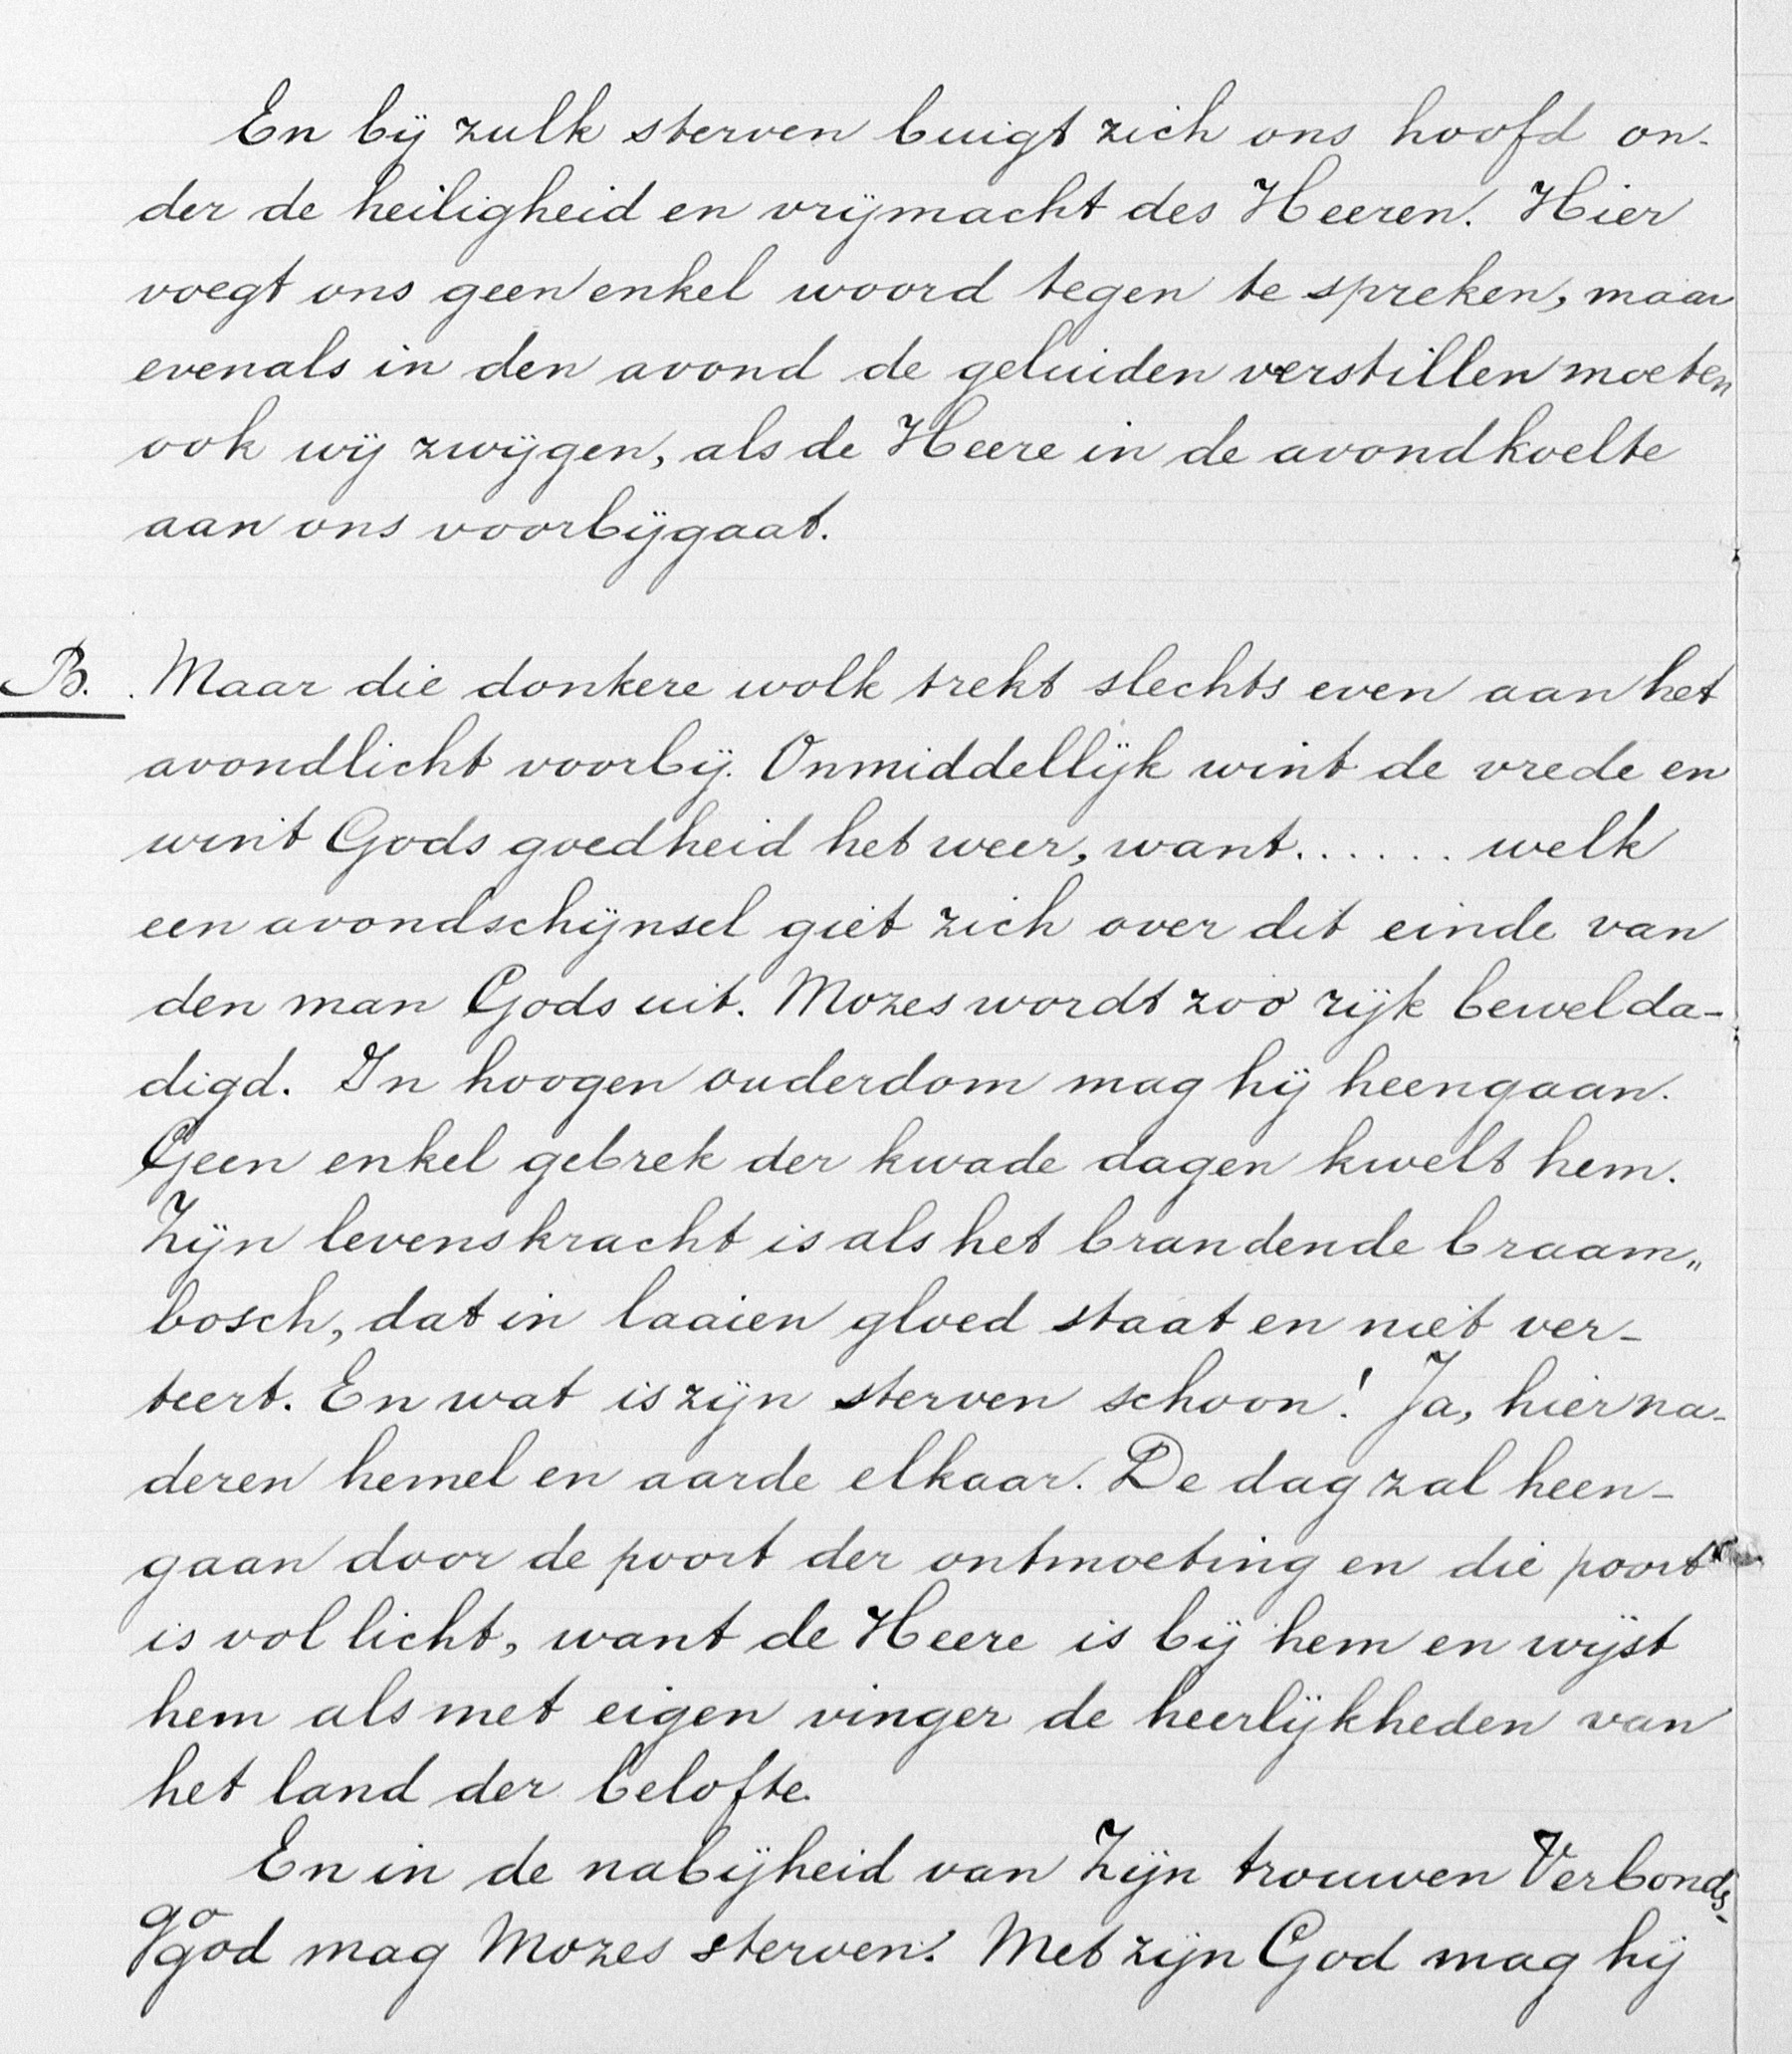 En bij zulk sterven buigt zich ons hoofd on-
der de heiligheid en vrijmacht des Heeren. Hier
voegt ons geen enkel woord tegen te spreken, maar
evenals in den avond de geluiden verstillen moeten
ook wij zwijgen, als de Heere in de avondkoelte
aan ons voorbijgaat.
B. Maar die donkere wolk trekt slechts even aan het
avondlicht voorbij. Onmiddellijk wint de vrede en
wint Gods goedheid het weer, want...... welk
een avondschijnsel giet zich over dit einde van
den man Gods uit. Mozes wordt zoo rijk bewelda-
digd. In hoogen ouderdom mag hij heengaan.
Geen enkel gebrek der kwade dagen kwelt hem.
Zijn levenskracht is als het brandende braam„
bosch, dat in laaien gloed staat en niet ver-
teert. En wat is zijn sterven schoon! Ja, hier na-
deren hemel en aarde elkaar. De dag zal heen-
gaan door de poort der ontmoeting en die poort
is vol licht, want de Heere is bij hem en wijst
hem als met eigen vinger de heerlijkheden van
het land der belofte.
En in de nabijheid van Zijn trouwen Verbonds-
god mag Mozes sterven. Met zijn God mag hij